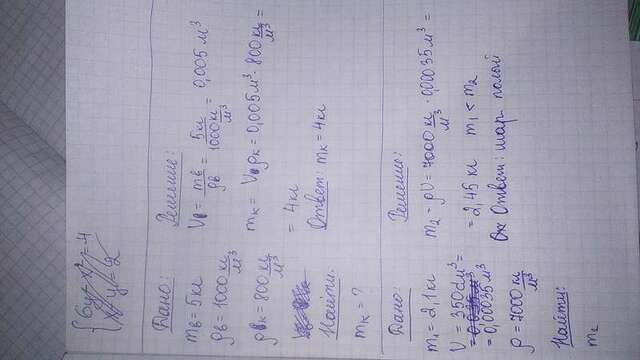 6y - x² = 4
x - y = 2
Дано:
mв = 5 кг
ρв = 1000 кг/м³
ρк = 800 кг/м³
Найти:
mк = ?
Решение:
V = mв/ρв = 5 кг/1000 кг/м³ = 0,005 м³
mк = Vρк = 0,005 м³ · 800 кг/м³ =
= 4 кг
Ответ: mк = 4 кг
Дано:
m₁ = 2,1 кг
V = 350 dм³ =
= 0,035 м³
= 0,00035 м³
ρ = 7000 кг/м³
Найти:
m₂
Решение:
m₂ - ρV = 7000 кг/м³ · 0,00035 м³ =
= 2,45 кг m₁ < m₂
Ответ: шар полый